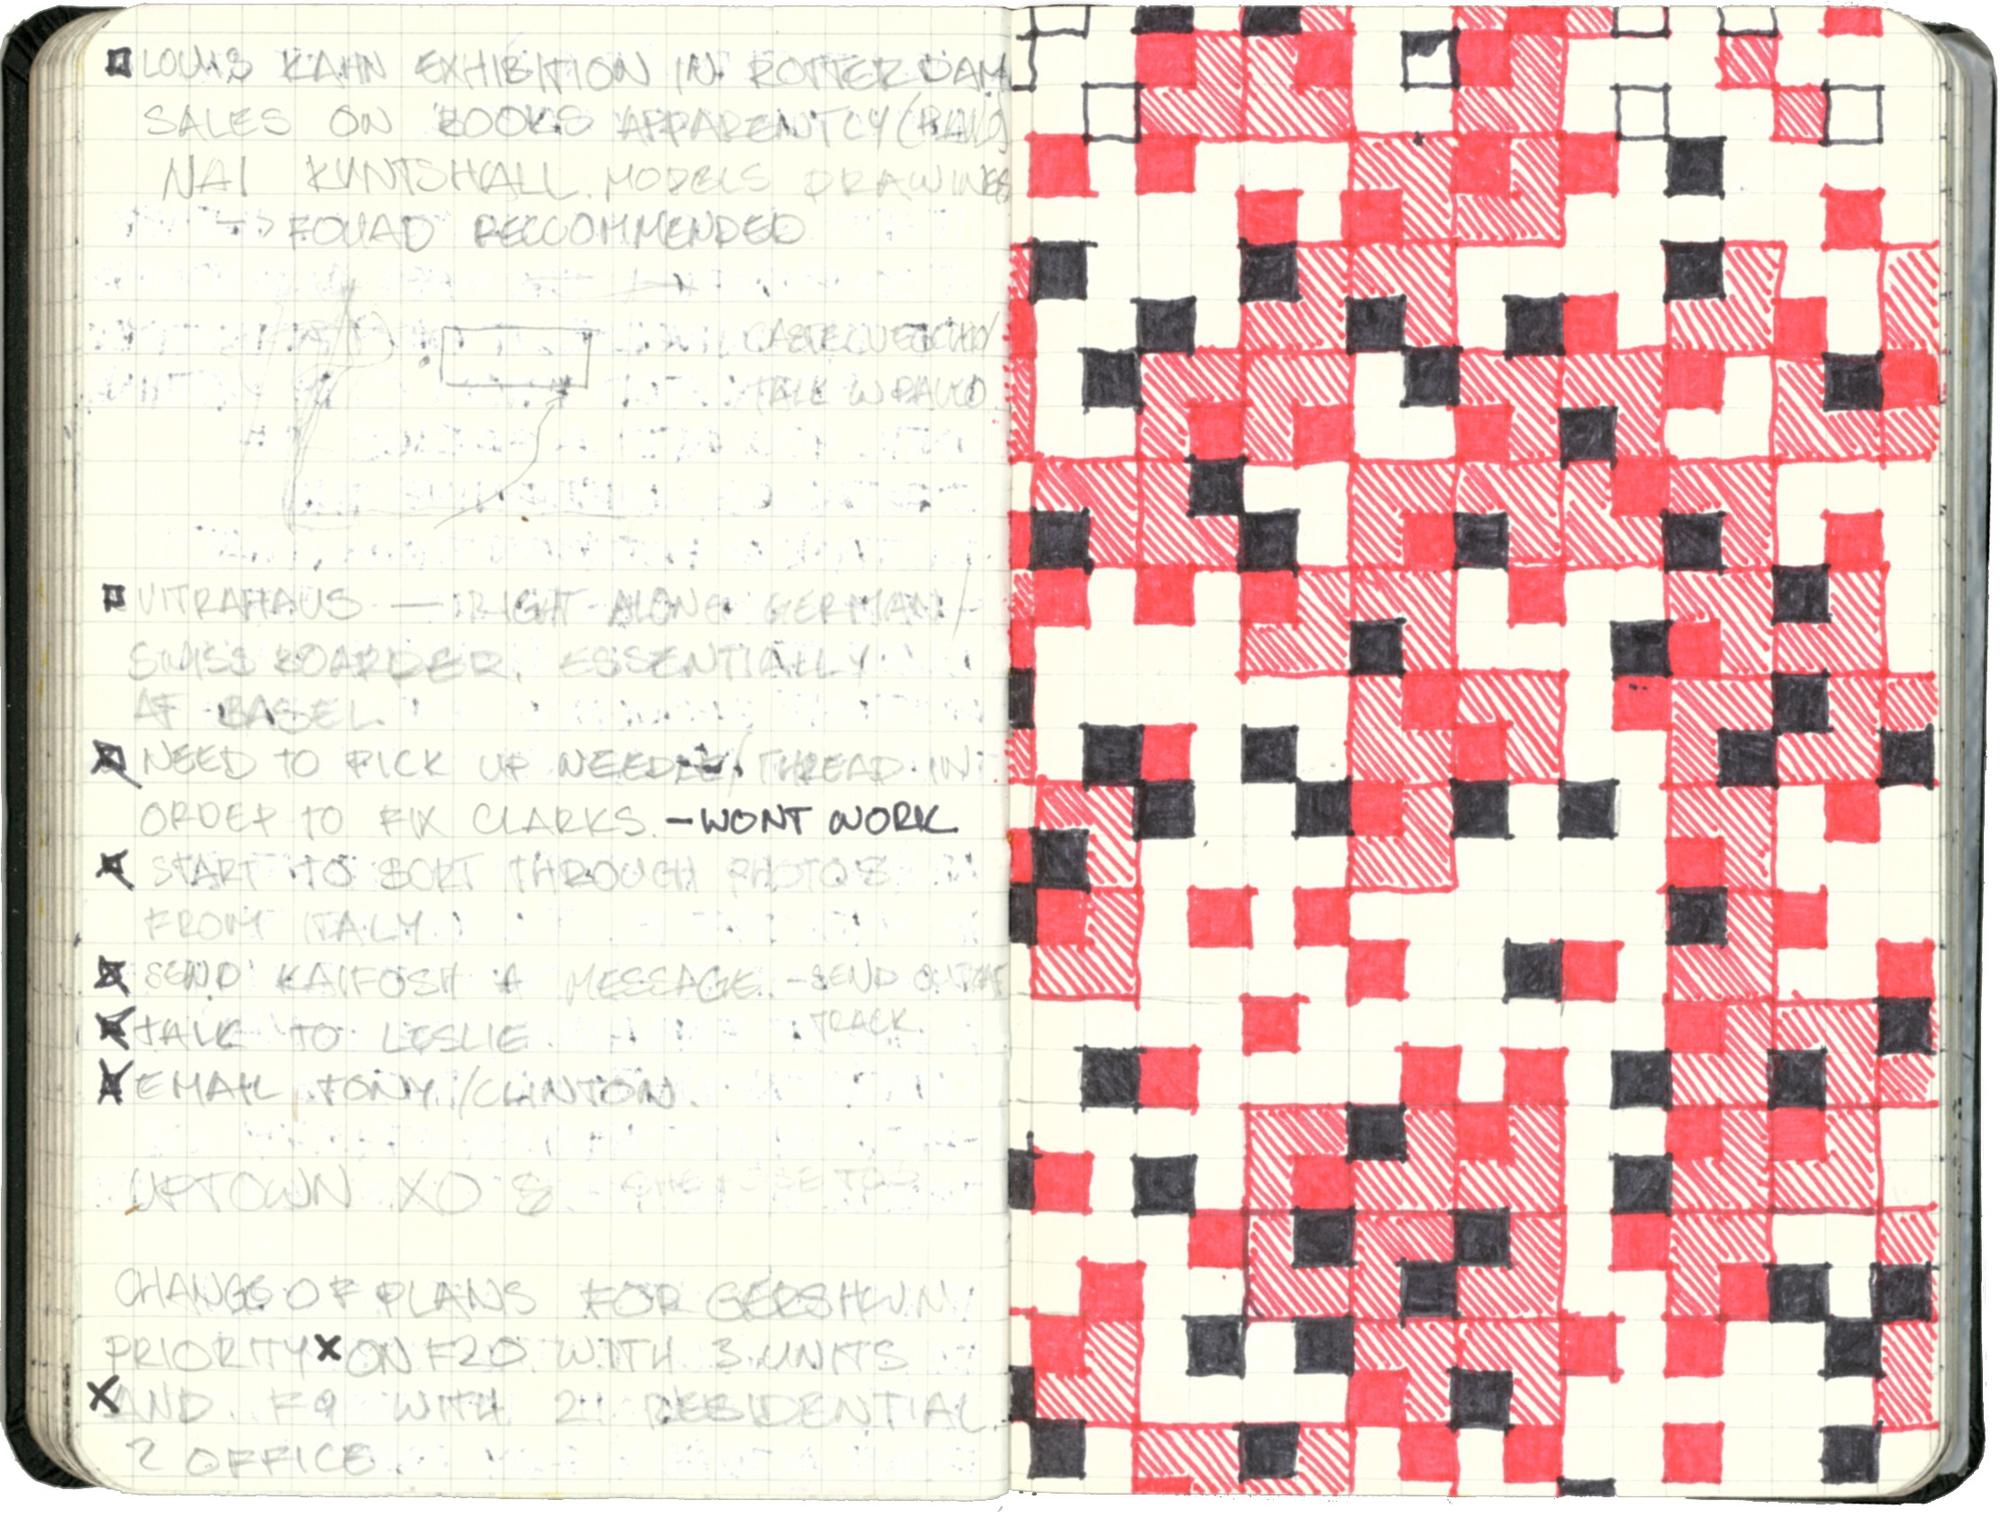 LOUIS KAHN EXHIBITION IN ROTTERDAM
SALES ON BOOKS APPARENTLY
NAI KUNTSHALL. MODELS DRAWINGS
→ FOUAD RECCOMMENDED
TALK W PAULO
VITRAHAUS — RIGHT ALONG GERMAN/
SWISS BOARDER, ESSENTIALLY
AT BASEL.
NEED TO PICK UP NEEDLE/THREAD IN
ORDER TO FIX CLARKS. - WONT WORK
START TO SORT THROUGH PHOTOS
FROM ITALY.
SEND KAIFOSH A MESSAGE. - SEND
TRACK.
TALK TO LESLIE
EMAIL TONY/CLINTON.
UPTOWN XO
CHANGE OF PLANS FOR GERSHWIN
PRIORITY X ON F20 WITH 3 UNITS
X AND F9 WITH 2 RESIDENTIAL
2 OFFICE